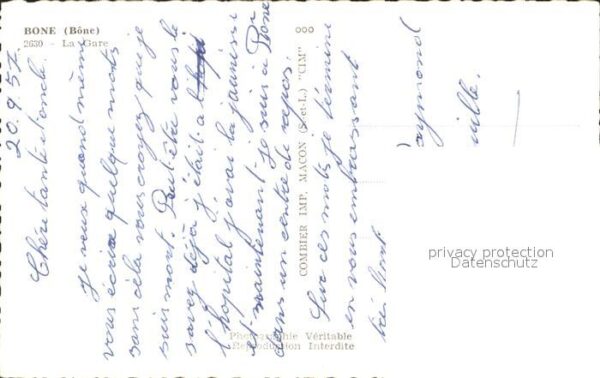 BONE (Bône)
2630 - La Gare
20.9.57
Chère tante et oncle.
Je veux quand même
vous écrire quelque mots
sans cela vous croyez que je
suis mort. Peut être vous le
savez déja j'était a
l'hopital j'avai la jaunisse
et maintenant je suis à Bone
dans un centre de repos.
Sur ces mots je termine
en vous embrassant
très fort.
Raymond
COMBIER IMP. MACON (S.-et-L.) "CIM"
Photographie Véritable
Reproduction Interdite
privacy protection
Datenschutz